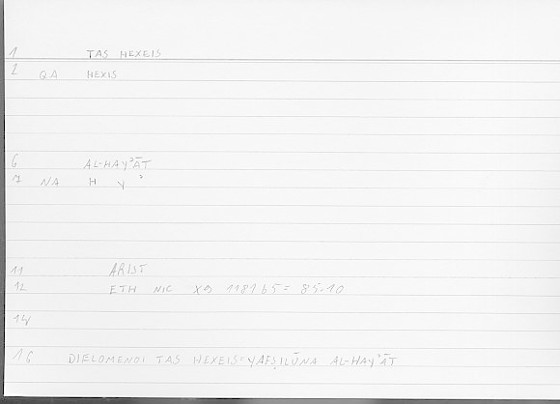 1 TAS HEXEIS
2 QA HEXIS
6 AL-HAYʾĀT
7 NA H Y ʾ
11 ARIST
12 ETH NIC X9 1181b5 = 85.10
14
16 DIELOMENOI TAS HEXEIS = YAFṢILŪNA AL-HAYʾĀT